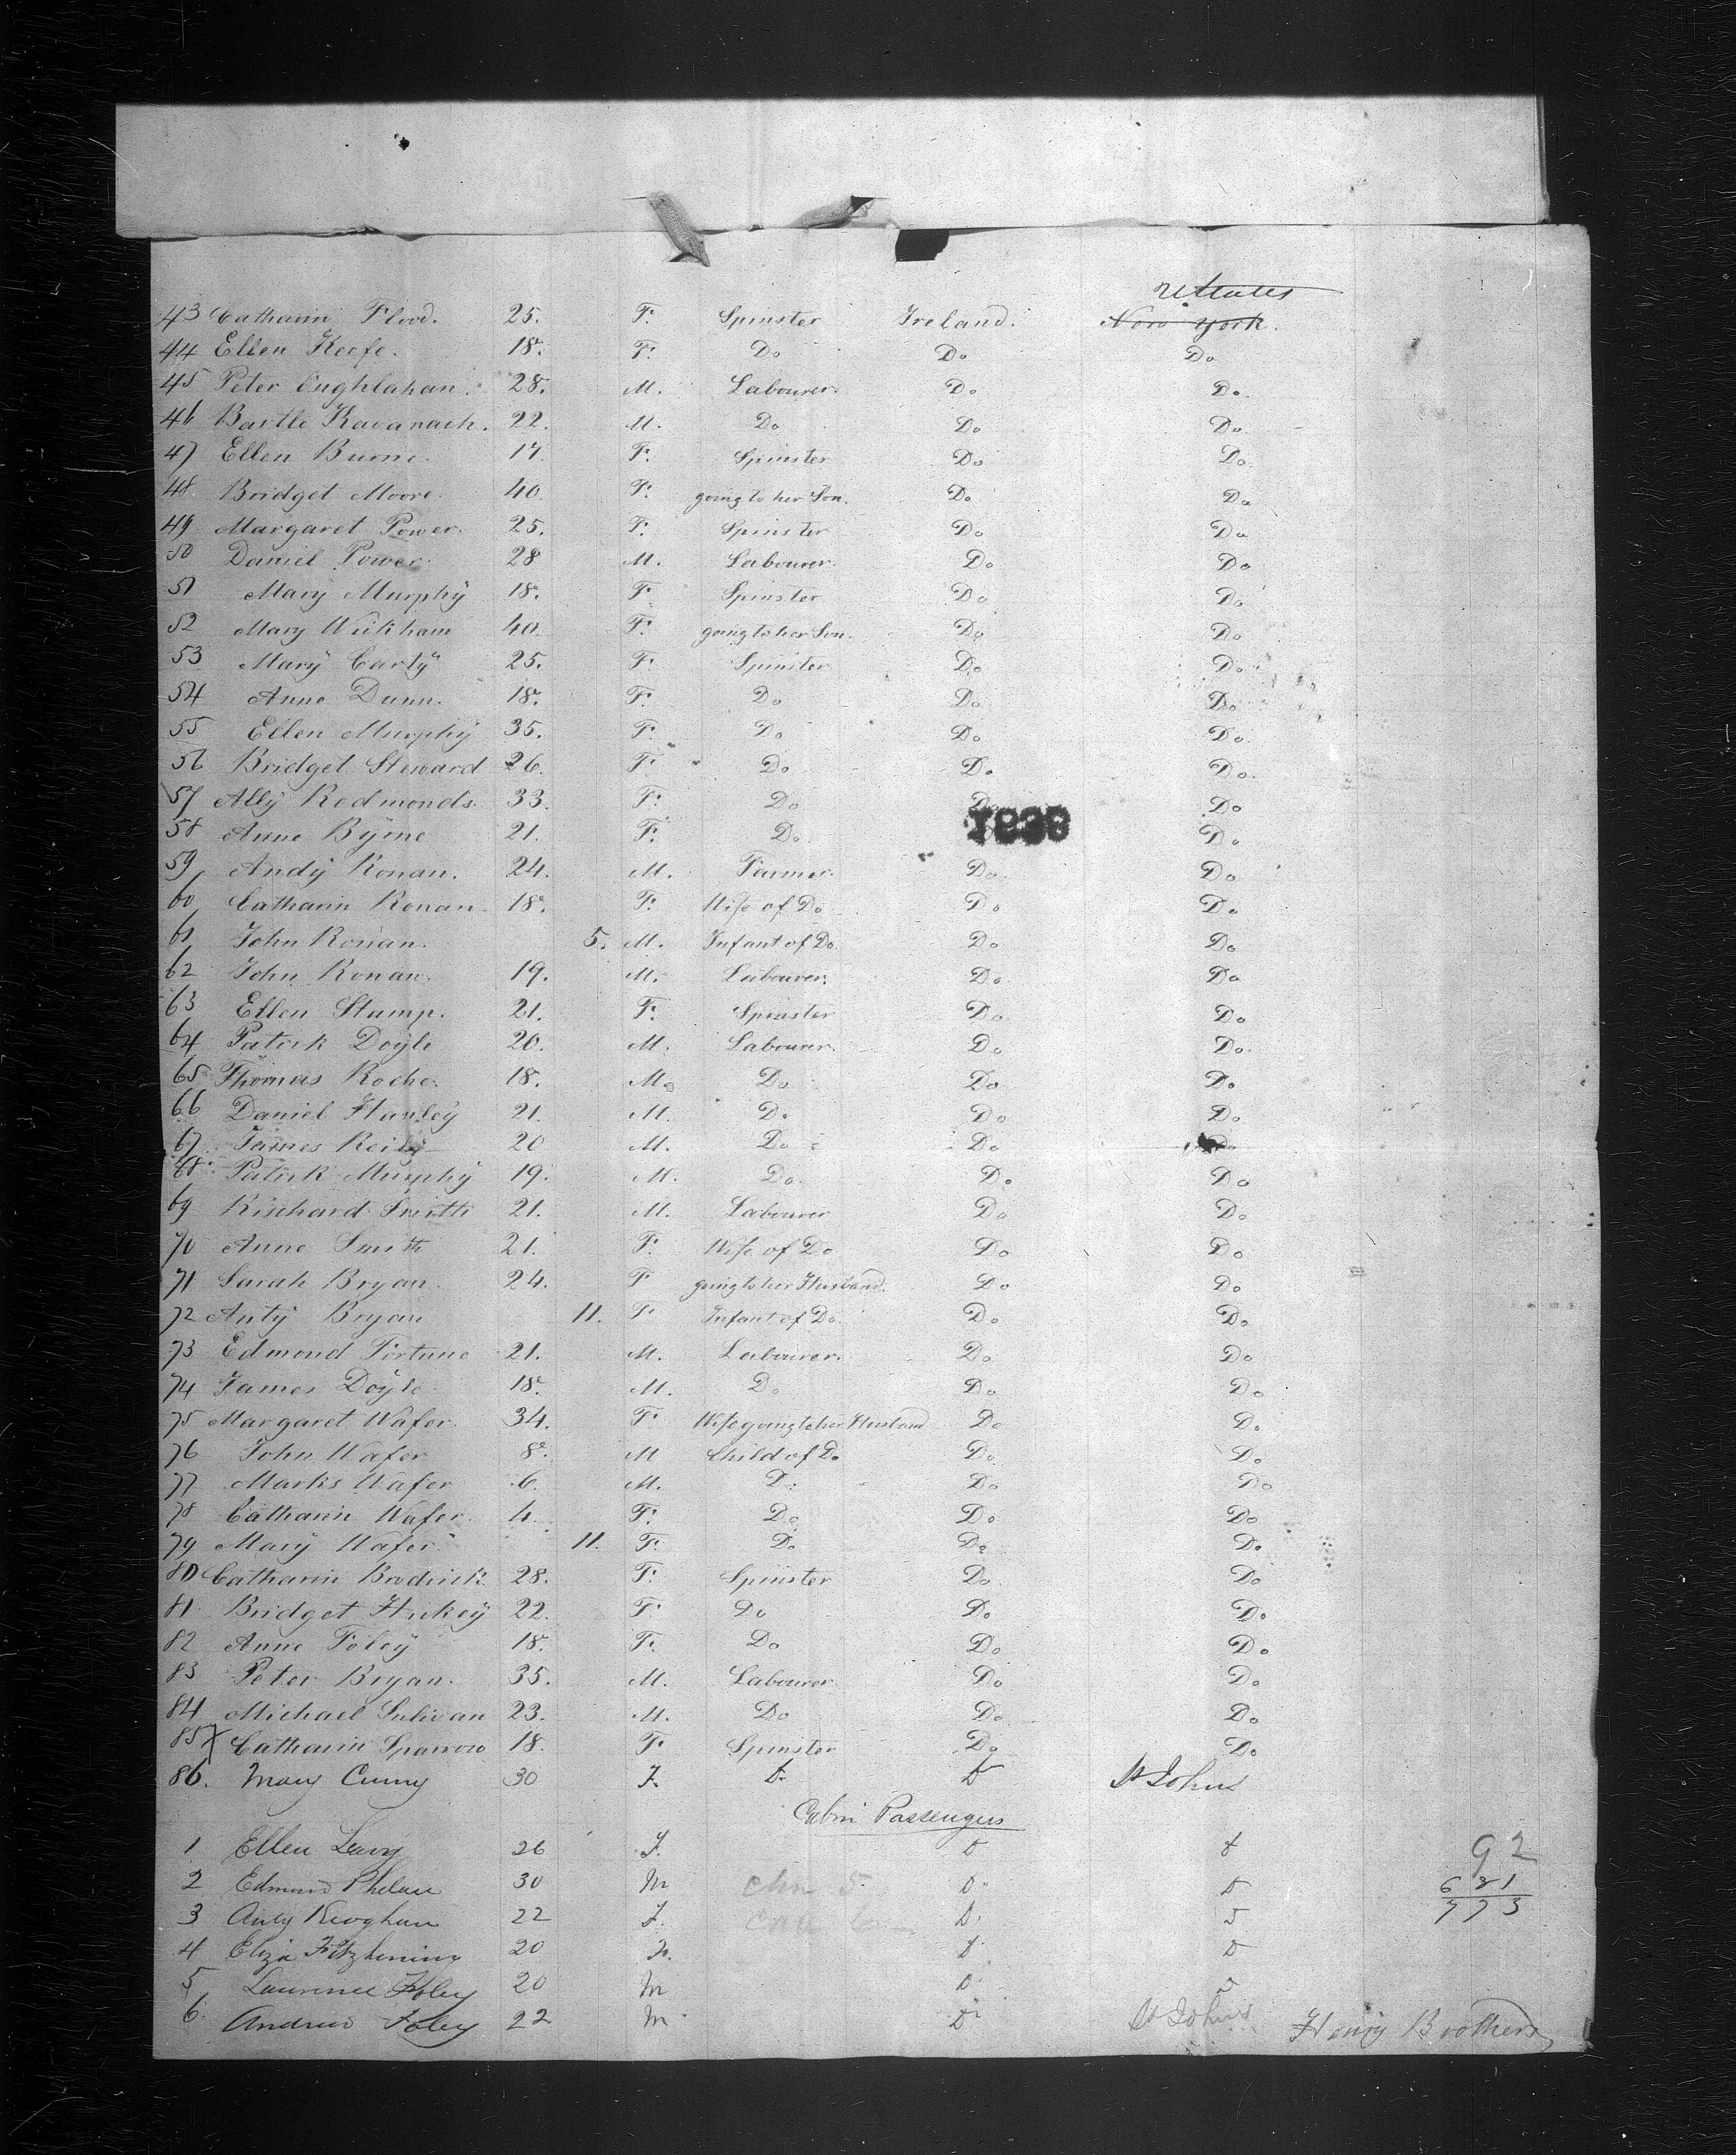 43 Catharin Flood. 25. F. Spinster Ireland. New York.
44 Ellen Keefe. 18. F. Do Do Do
45 Peter 28. M. Labourer. Do Do.
46 Bartle Kavanach. 22. M. Do Do Do.
47 Ellen Burne. 17. F. Spinster Do Do
48 Bridget Moore. 40. F. going to her Son. Do Do
49 Margaret Power. 25. F. Spinster Do Do
50 Daniel Power. 28 M. Labourer. Do Do
51 Mary Murphy 18. F. Spinster Do Do
52 Mary Wickham 40. F. going to her Son. Do Do
53 Mary Carty 25. F. Spinster Do Do
54 Anne Dunn. 18. F. Do Do Do
55 Ellen Murphy 35. F. Do Do Do
56 Bridget Steward 26. F. Do Do Do
57 Ally Redmonds. 33. F. Do Do Do
1838
58 Anne Byrne 21. F. Do. Do
59 Andy Ronan. 24. M. Farmer. Do Do
60 Catharin Ronan 18. F. Wife of Do Do Do
61 John Ronan. 5. M. Infant of Do. Do Do
62 John Ronan. 19. M. Labourer. Do Do
63 Ellen Stump. 21. F. Spinster Do Do
64 Patrik Doyle 20. M. Labourer. Do Do.
65 Thomas Roche. 18. M. Do Do Do
66 Daniel Hanley 21. M. Do Do Do
67 James Reily 20 M. Do Do Do
68 Patrik Murphy 19. M. Do. Do Do
69 Rischard Smith 21. M. Labourer Do Do
70 Anne Smith 21. F. Wife of Do Do Do
71 Sarah Bryan. 24. F going to her Husband. Do Do
72 Anty Bryan 11. F. Infant of Do. Do Do
73 Edmond Fortune 21. M. Labourer. Do Do
74 James Doyle 18. M. Do Do Do
75 Margaret Wafer. 34. F. Wife going to her Husband Do Do
76 John Wafer 8. M Child of Do Do Do
77 Marks Wafer 6. M. Do Do Do
78 Catharin Wafer. 4. F. Do Do Do
79 Mary Wafer 11. F. Do Do Do
80 Catharin Brodrick. 28. F. Spinster Do Do
81 Bridget Hickey 22. F. Do Do Do
82 Anne Foley 18. F. Do Do Do
83 Peter Bryan. 35. M. Labourer Do Do
84 Michael Sulivan 23. M. Do Do Do
85 X Catharin Sparrow 18. F. Spinster Do Do
86. Mary 30 F. D. D St Johns
Cabin Passengers
1 Ellen Leary 26 F. D
92
2 Edmund Phelan 30 M D D
621
3 22 F. D. D
773
4 Eliza 20 F. D D
5 Laurence Foley 20 M D D
6. Andrew Foley 22 M D St Johns Henry Brothers